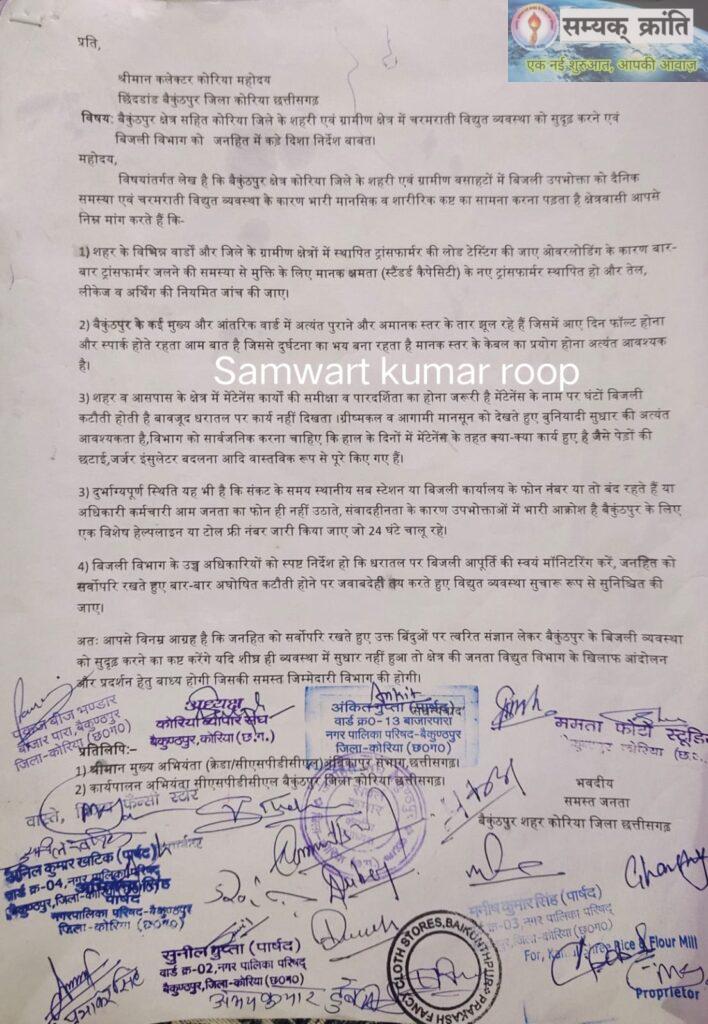 सम्यक् क्रांति
एक नई शुरुआत, आपकी आवाज़
प्रति,
श्रीमान कलेक्टर कोरिया महोदय
छिंदडांड बैकुंठपुर जिला कोरिया छत्तीसगढ़
विषय: बैकुंठपुर क्षेत्र सहित कोरिया जिले के शहरी एवं ग्रामीण क्षेत्र में चरमराती विद्युत व्यवस्था को सुदृढ़ करने एवं
बिजली विभाग को जनहित में कड़े दिशा निर्देश बाबत।
महोदय,
विषयांतर्गत लेख है कि बैकुंठपुर क्षेत्र कोरिया जिले के शहरी एवं ग्रामीण बसाहटों में बिजली उपभोक्ता को दैनिक
समस्या एवं चरमराती विद्युत व्यवस्था के कारण भारी मानसिक व शारीरिक कष्ट का सामना करना पड़ता है क्षेत्रवासी आपसे
निम्न मांग करते हैं कि-
1) शहर के विभिन्न वार्डों और जिले के ग्रामीण क्षेत्रों में स्थापित ट्रांसफार्मर की लोड टेस्टिंग की जाए ओवरलोडिंग के कारण बार-
बार ट्रांसफार्मर जलने की समस्या से मुक्ति के लिए मानक क्षमता (स्टैंडर्ड कैपेसिटी) के नए ट्रांसफार्मर स्थापित हो और तेल,
लीकेज व अर्थिंग की नियमित जांच की जाए।
2) बैकुंठपुर के कई मुख्य और आंतरिक वार्ड में अत्यंत पुराने और अमानक स्तर के तार झूल रहे हैं जिसमें आए दिन फॉल्ट होना
और स्पार्क होते रहता आम बात है जिससे दुर्घटना का भय बना रहता है मानक स्तर के केबल का प्रयोग होना अत्यंत आवश्यक
है।
Samwart kumar roop
3) शहर व आसपास के क्षेत्र में मेंटेनेंस कार्यो की समीक्षा व पारदर्शिता का होना जरूरी है मेंटेनेंस के नाम पर घंटों बिजली
कटौती होती है बावजूद धरातल पर कार्य नहीं दिखता ।ग्रीष्मकल व आगामी मानसून को देखते हुए बुनियादी सुधार की अत्यंत
आवश्यकता है,विभाग को सार्वजनिक करना चाहिए कि हाल के दिनों में मेंटेनेंस के तहत क्या-क्या कार्य हुए है जैसे पेड़ों की
छटाई,जर्जर इंसुलेटर बदलना आदि वास्तविक रूप से पूरे किए गए हैं।
3) दुर्भाग्यपूर्ण स्थिति यह भी है कि संकट के समय स्थानीय सब स्टेशन या बिजली कार्यालय के फोन नंबर या तो बंद रहते हैं या
अधिकारी कर्मचारी आम जनता का फोन ही नहीं उठाते, संवादहीनता के कारण उपभोक्ताओं में भारी आक्रोश है बैकुंठपुर के लिए
एक विशेष हेल्पलाइन या टोल फ्री नंबर जारी किया जाए जो 24 घंटे चालू रहे।
4) बिजली विभाग के उच्च अधिकारियों को स्पष्ट निर्देश हो कि धरातल पर बिजली आपूर्ति की स्वयं मॉनिटरिंग करें, जनहित को
सर्वोपरि रखते हुए बार-बार अघोषित कटौती होने पर जवाबदेही तय करते हुए विद्युत व्यवस्था सुचारू रूप से सुनिश्चित की
जाए।
अतः आपसे विनम्र आग्रह है कि जनहित को सर्वोपरि रखते हुए उक्त बिंदुओं पर त्वरित संज्ञान लेकर बैकुंठपुर के बिजली व्यवस्था
को सुदृढ़ करने का कष्ट करेंगे यदि शीघ्र ही व्यवस्था में सुधार नहीं हुआ तो क्षेत्र की जनता विद्युत विभाग के खिलाफ आंदोलन
और प्रदर्शन हेतु बाध्य होगी जिसकी समस्त जिम्मेदारी विभाग की होगी।
पंकज बीज भण्डार
बाजार पारा, बैकुण्ठपुर
जिला-कोरिया (छ०ग०)
अध्यक्ष
कोरिया व्यापार संघ
बैकुण्ठपुर,कोरिया (छ.ग.)
Ankit
अंकित गुप्ता (पार्षद)
वार्ड क्र०-13 बाजारपारा
नगर पालिका परिषद-बैकुण्ठपुर
जिला-कोरिया (छ०ग०)
ममता फोटो स्टूडियो
कोरिया (छ.ग.)
प्रतिलिपि:–
1) श्रीमान मुख्य अभियंता (क्रेडा/सीएसपीडीसीएल)अंबिकापुर संभाग,छत्तीसगढ़।
2) कार्यपालन अभियंता सीएसपीडीसीएल बैकुंठपुर जिला कोरिया छत्तीसगढ़।
भवदीय
समस्त जनता
बैकुंठपुर शहर कोरिया जिला छत्तीसगढ़
वास्ते, फैन्सी स्टोर
अनिल कुमार खटिक (पार्षद)
वार्ड क्र-04, नगर पालिका परिषद
बैकुण्ठपुर, जिला-कोरिया
पार्षद
नगरपालिका परिषद-बैकुण्ठपुर
जिला-कोरिया (छ०ग०)
सुनील गुप्ता (पार्षद)
वार्ड क्र-02, नगर पालिका परिषद्
बैकुण्ठपुर,जिला-कोरिया (छ०ग०)
मनीष कुमार सिंह (पार्षद)
क्र-03, नगर पालिका परिषद्
जिला-कोरिया (छ०ग०)
PRAKASH FANCY CLOTH STORES, BAIKUNTHPUR
For, Rice & Flour Mill
Proprietor